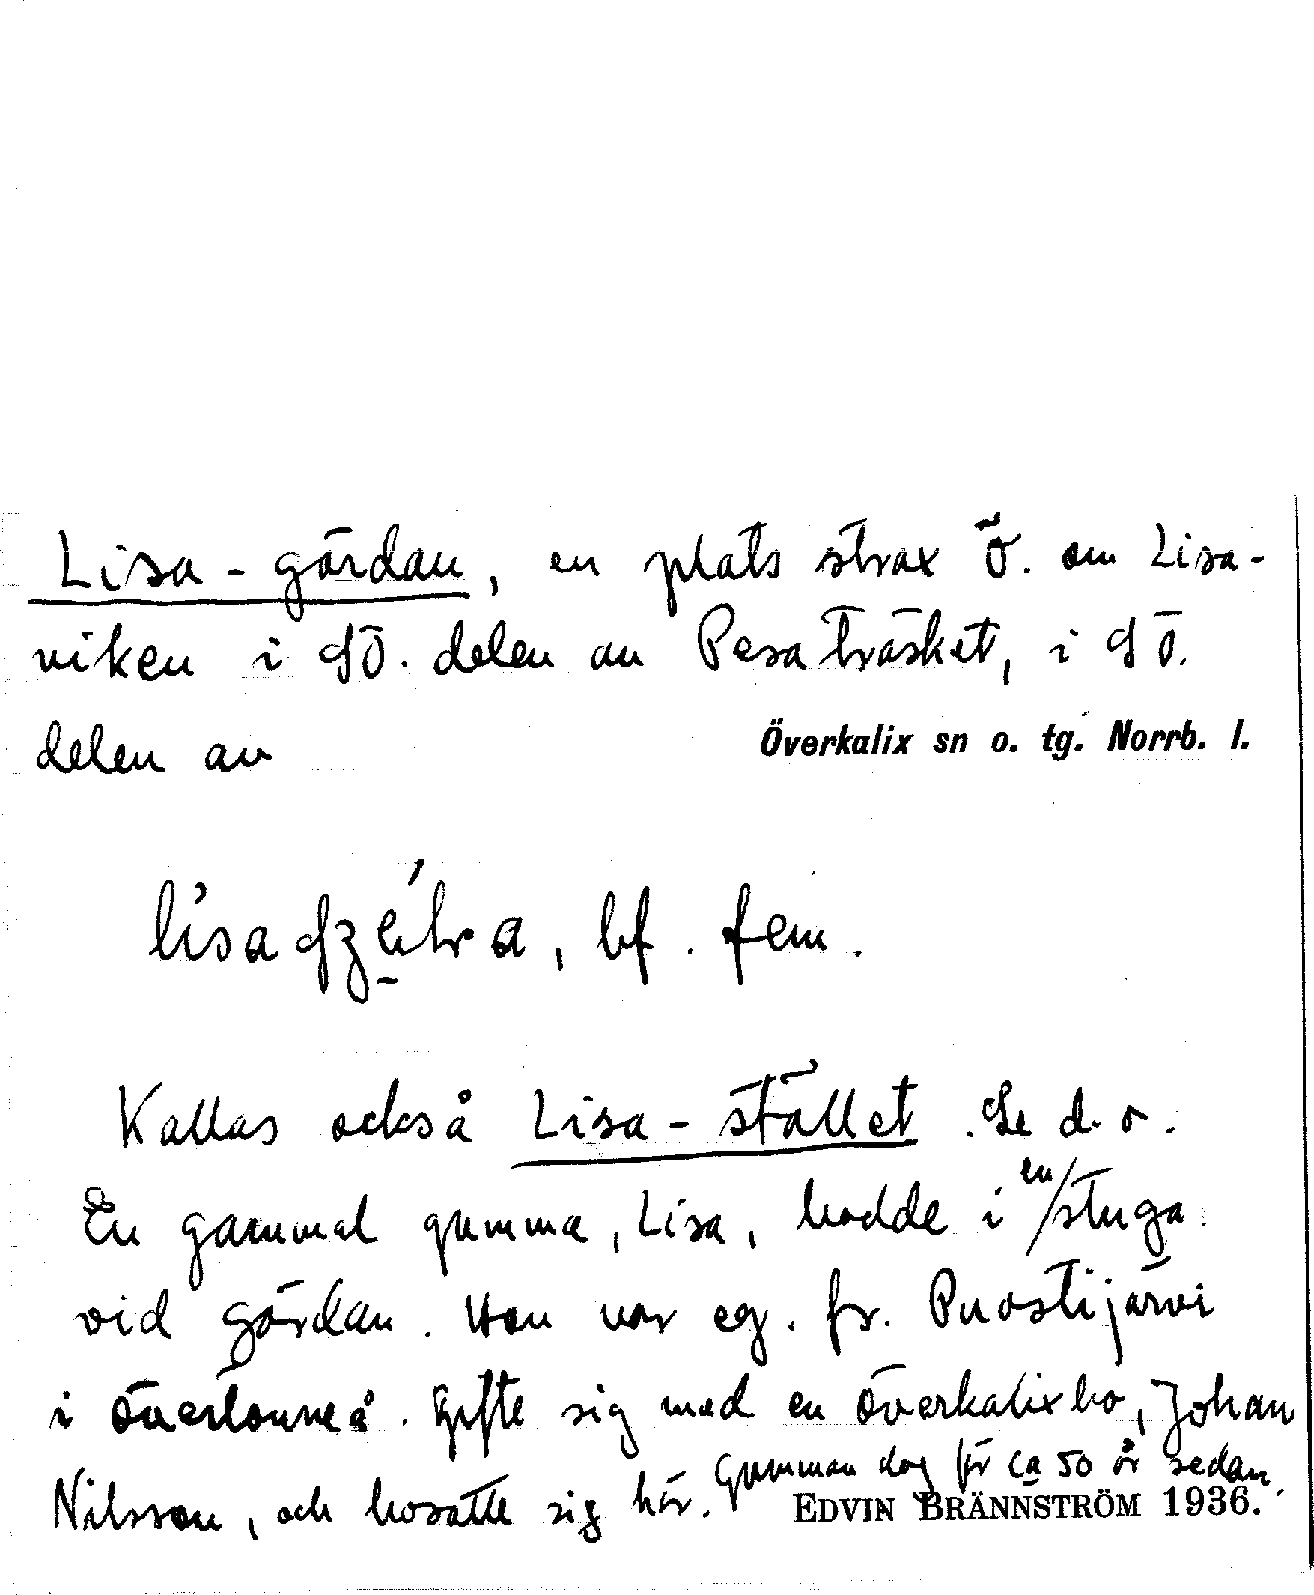 Lisa-gärdan, en plats strax Ö. om Lisa-
viken i SÖ. delen av Pesaträsket, i SÖ.
delen av Överkalix sn o. tg. Norrb. l.
bf. fem.
Kallas också Lisa-stället. Se d. o.
En gammal gumma, Lisa, bodde i en stuga
vid gärdan. Hon var eg. fr. Puostijärvi
i Övertorneå. Gifte sig med en överkalixbo, Johan
Nilsson, och bosatte sig här. Gumman dog för ca 50 år sedan.
EDVIN BRÄNNSTRÖM 1936.